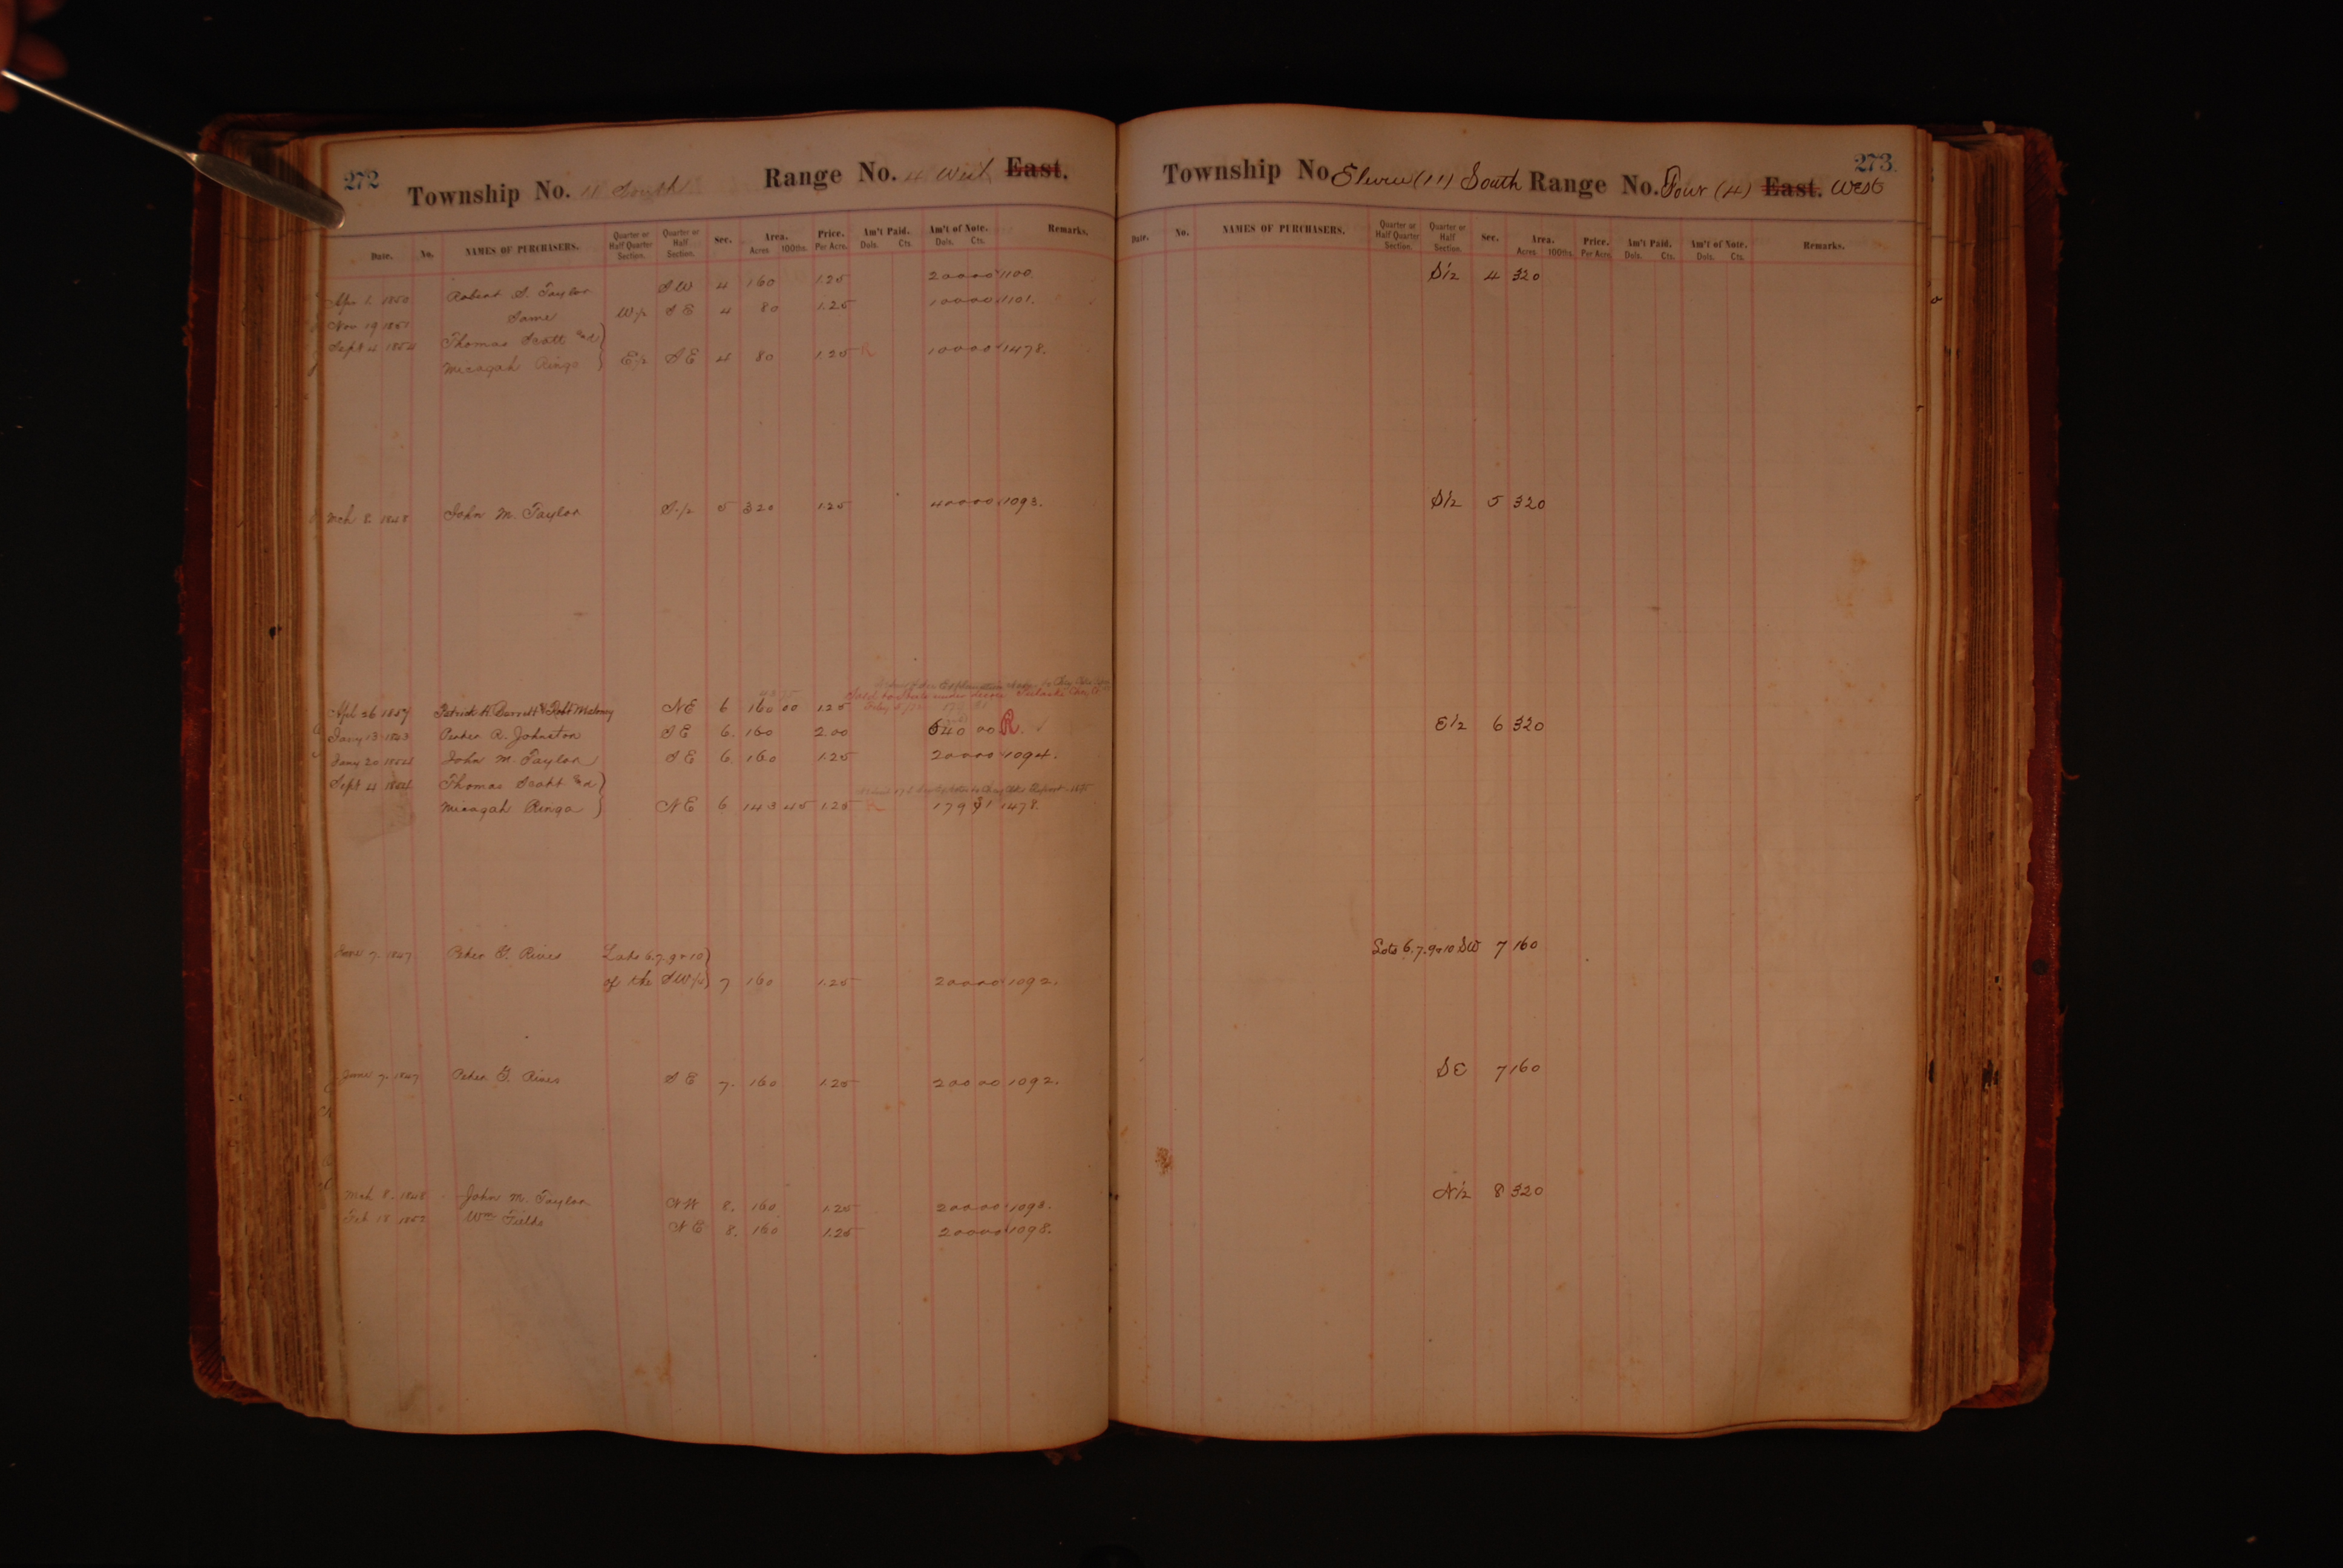 272
Township No. 11 South Range No. 4 West East.
Date. No. NAMES OF PURCHASERS. Quarter or Half Quarter Section. Quarter or Half Section. Sec. Area. Acres 100ths. Price. Per Acre. Am't Paid. Dols. Cts. Am't of Note. Dols. Cts. Remarks.
Apr 1. 1850 Robert S. Taylor SW 4 160 1.25 200 00 1100
Nov 19 1851 Same W/2 SE 4 80 1.25 100 00 1101.
Sept 4 1854 Thomas Scott and
Micagah Ringo E/2 SE 4 80 1.25 R 100 00 1478.
Mch 8. 1848 John M. Taylor S./2 5 320 1.25 400 00 1093.
Apl 26 1859 Patrick H. NE 6 160 00 1.25
Jany 13 1863 R. Johnston SE 6. 160 2 00 540 00 R.
Jany 20 John M. Taylor SE 6. 160 1.25 200 00 1094.
Sept 4 1854 Thomas Scott and
Micagah Ringo NE 6 143 45 1.25 R 179 31 1478.
June 7. 1847 Peter G. Rives Lots 6.7.9 & 10
of the SW/4 7 160 1.25 200 00 1092.
June 7. 1847 Peter G. Rives SE 7. 160 1.25 200 00 1092.
Mch 8. 1848 John M. Taylor NW 8. 160 1.25 200 00 1093.
Feb 18 Wm Fields NE 8. 160 1.25 200 00 1098.
273.
Township No. Eleven (11) South Range No. Four (4) East. West
Date. No. NAMES OF PURCHASERS. Quarter or Half Quarter Section. Quarter or Half Section. Sec. Area. Acres 100ths. Price. Per Acre. Am't Paid. Dols. Cts. Am't of Note. Dols. Cts. Remarks.
S1/2 4 320
S1/2 5 320
E1/2 6 320
Lots 6.7.9 & 10 SW 7 160
SE 7 160
N1/2 8 320